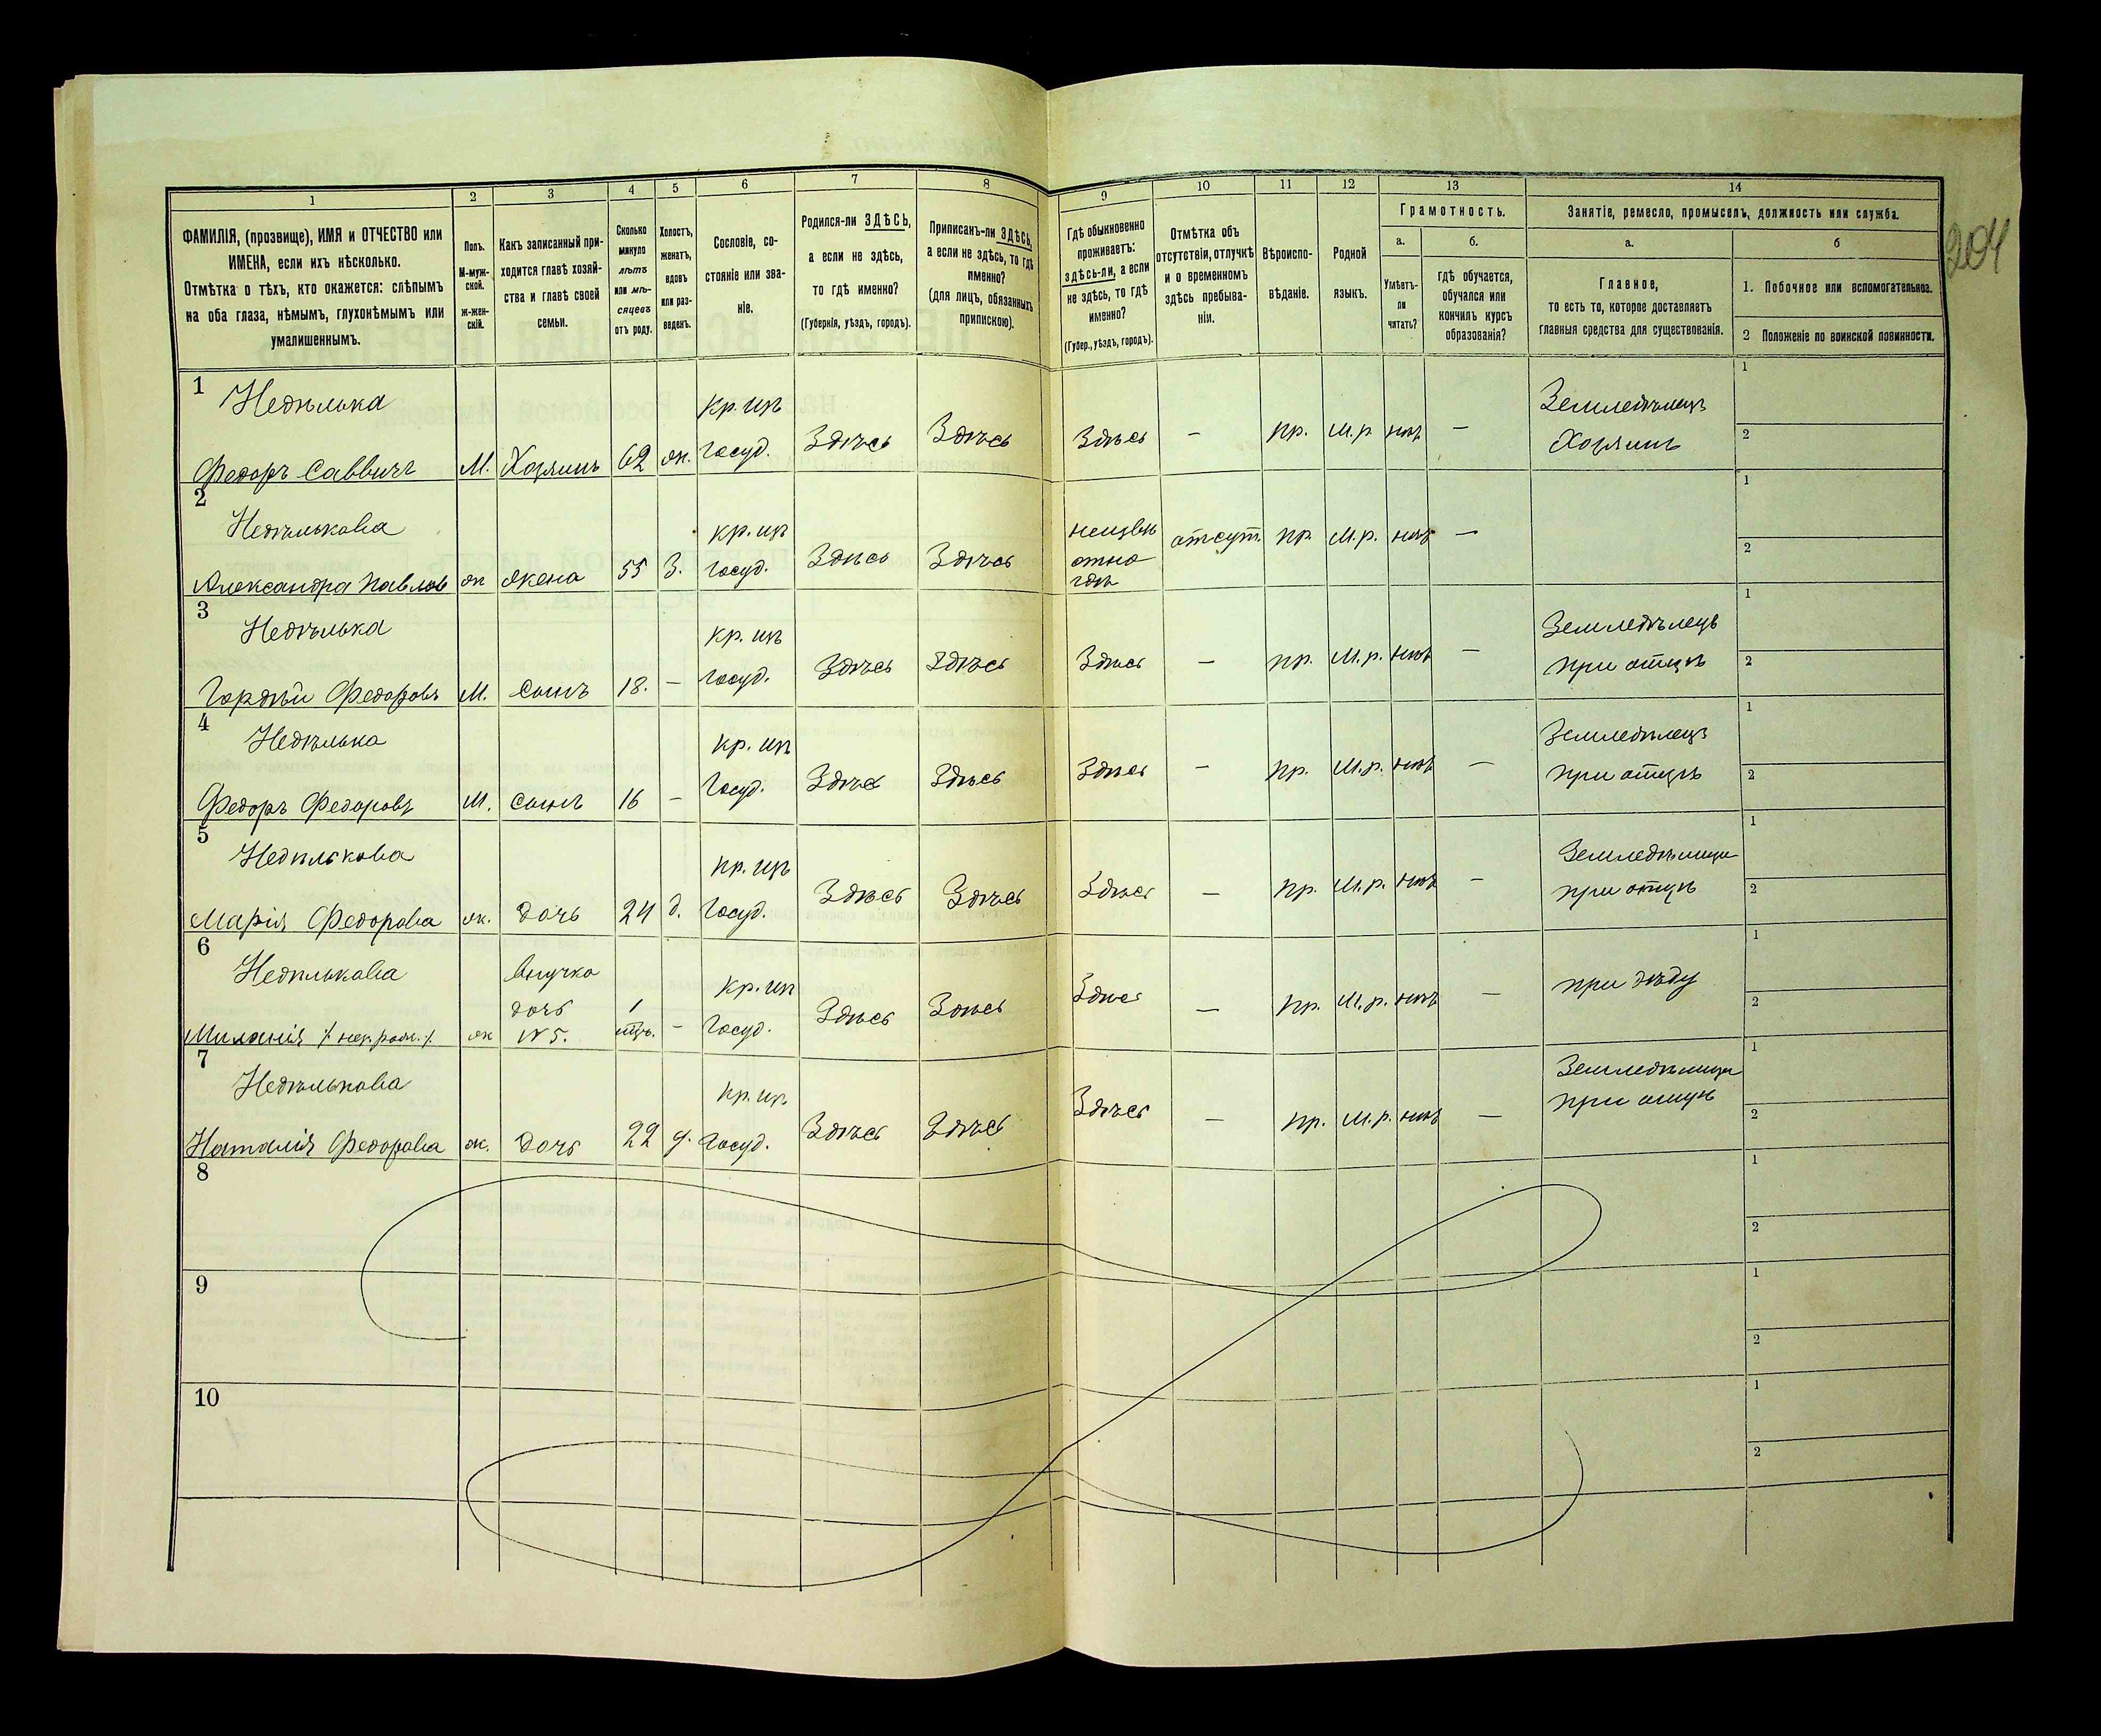 204
1 2 3 4 5 6 7 8 9 10 11 12 13 14
ФАМИЛІЯ, (прозвище), ИМЯ и ОТЧЕСТВО или
ИМЕНА, если ихъ нѣсколько.
Отмѣтка о тѣхъ, кто окажется: слѣпымъ
на оба глаза, нѣмымъ, глухонѣмымъ или
умалишеннымъ.
Полъ.
М-муж-
ской.
ж-жен-
скій.
Какъ записанный при-
ходится главѣ хозяй-
ства и главѣ своей
семьи.
Сколько
минуло
лѣтъ
или мѣ-
сяцевъ
отъ роду.
Холостъ,
женатъ,
вдовъ
или раз-
веденъ.
Сословіе, со-
стояніе или зва-
ніе.
Родился-ли ЗДѢСЬ,
а если не здѣсь,
то гдѣ именно?
(Губернія, уѣздъ, городъ).
Приписанъ-ли ЗДѢСЬ,
а если не здѣсь, то гдѣ
именно?
(для лицъ, обязанныхъ
припискою).
Гдѣ обыкновенно
проживаетъ:
здѣсь-ли, а если
не здѣсь, то гдѣ
именно?
(Губер., уѣздъ, городъ).
Отмѣтка объ
отсутствіи, отлучкѣ
и о временномъ
здѣсь пребыва-
ніи.
Вѣроиспо-
вѣданіе.
Родной
языкъ.
Грамотность.
а.
Умѣетъ-
ли
читать?
б.
гдѣ обучается,
обучался или
кончилъ курсъ
образованія?
Занятіе, ремесло, промыселъ, должность или служба.
а.
Главное,
то есть то, которое доставляетъ
главныя средства для существованія.
б
1. Побочное или вспомогательное.
2 Положеніе по воинской повинности.
1 Недѣлька
Федоръ Саввичъ М. Хозяинъ 62 ж. кр. изъ
госуд. Здѣсь Здѣсь Здѣсь — пр. м.р. нѣтъ — Земледѣлецъ
Хозяинъ 1
2
2 Недѣлькова
Александра Павлов ж жена 55 З. кр. изъ
госуд. Здѣсь Здѣсь неизвѣ
стно
гдѣ отсут. пр м.р. нѣтъ — 1
2
3 Недѣлька
Гордѣй Федоровъ М. сынъ 18. — кр. изъ
госуд. Здѣсь Здѣсь Здѣсь — пр. м.р. нѣтъ — Земледѣлецъ
при отцѣ 1
2
4 Недѣлька
Федоръ Федоровъ М. сынъ 16 — кр. изъ
госуд. Здѣсь Здѣсь Здѣсь — пр. м.р. нѣтъ — Земледѣлецъ
при отцѣ 1
2
5 Недѣлькова
Марія Федорова ж. дочь 24 д. кр. изъ
госуд. Здѣсь Здѣсь Здѣсь — пр. м.р. нѣтъ — Земледѣлица
при отцѣ 1
2
6 Недѣлькова
Миланія ж внучка
дочь
№ 5. 1 — кр. изъ
госуд. Здѣсь Здѣсь Здѣсь — пр. м.р. нѣтъ — при дѣду 1
2
7 Недѣлькова
Наталія Федорова ж. дочь 22 д. кр. изъ
госуд. Здѣсь Здѣсь Здѣсь — пр. м.р. нѣтъ — Земледѣлица
при отцѣ 1
2
8 1
2
9 1
2
10 1
2